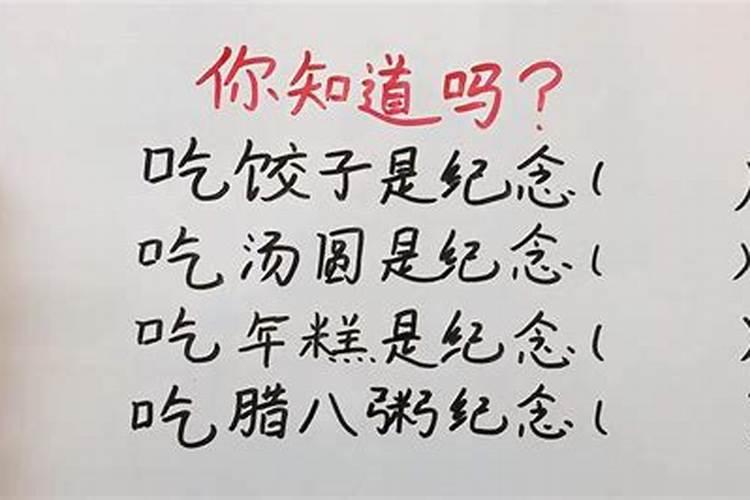 你知道吗?
吃饺子是纪念(
吃汤圆是纪念(
吃年糕是纪念(
吃腊八粥纪念(